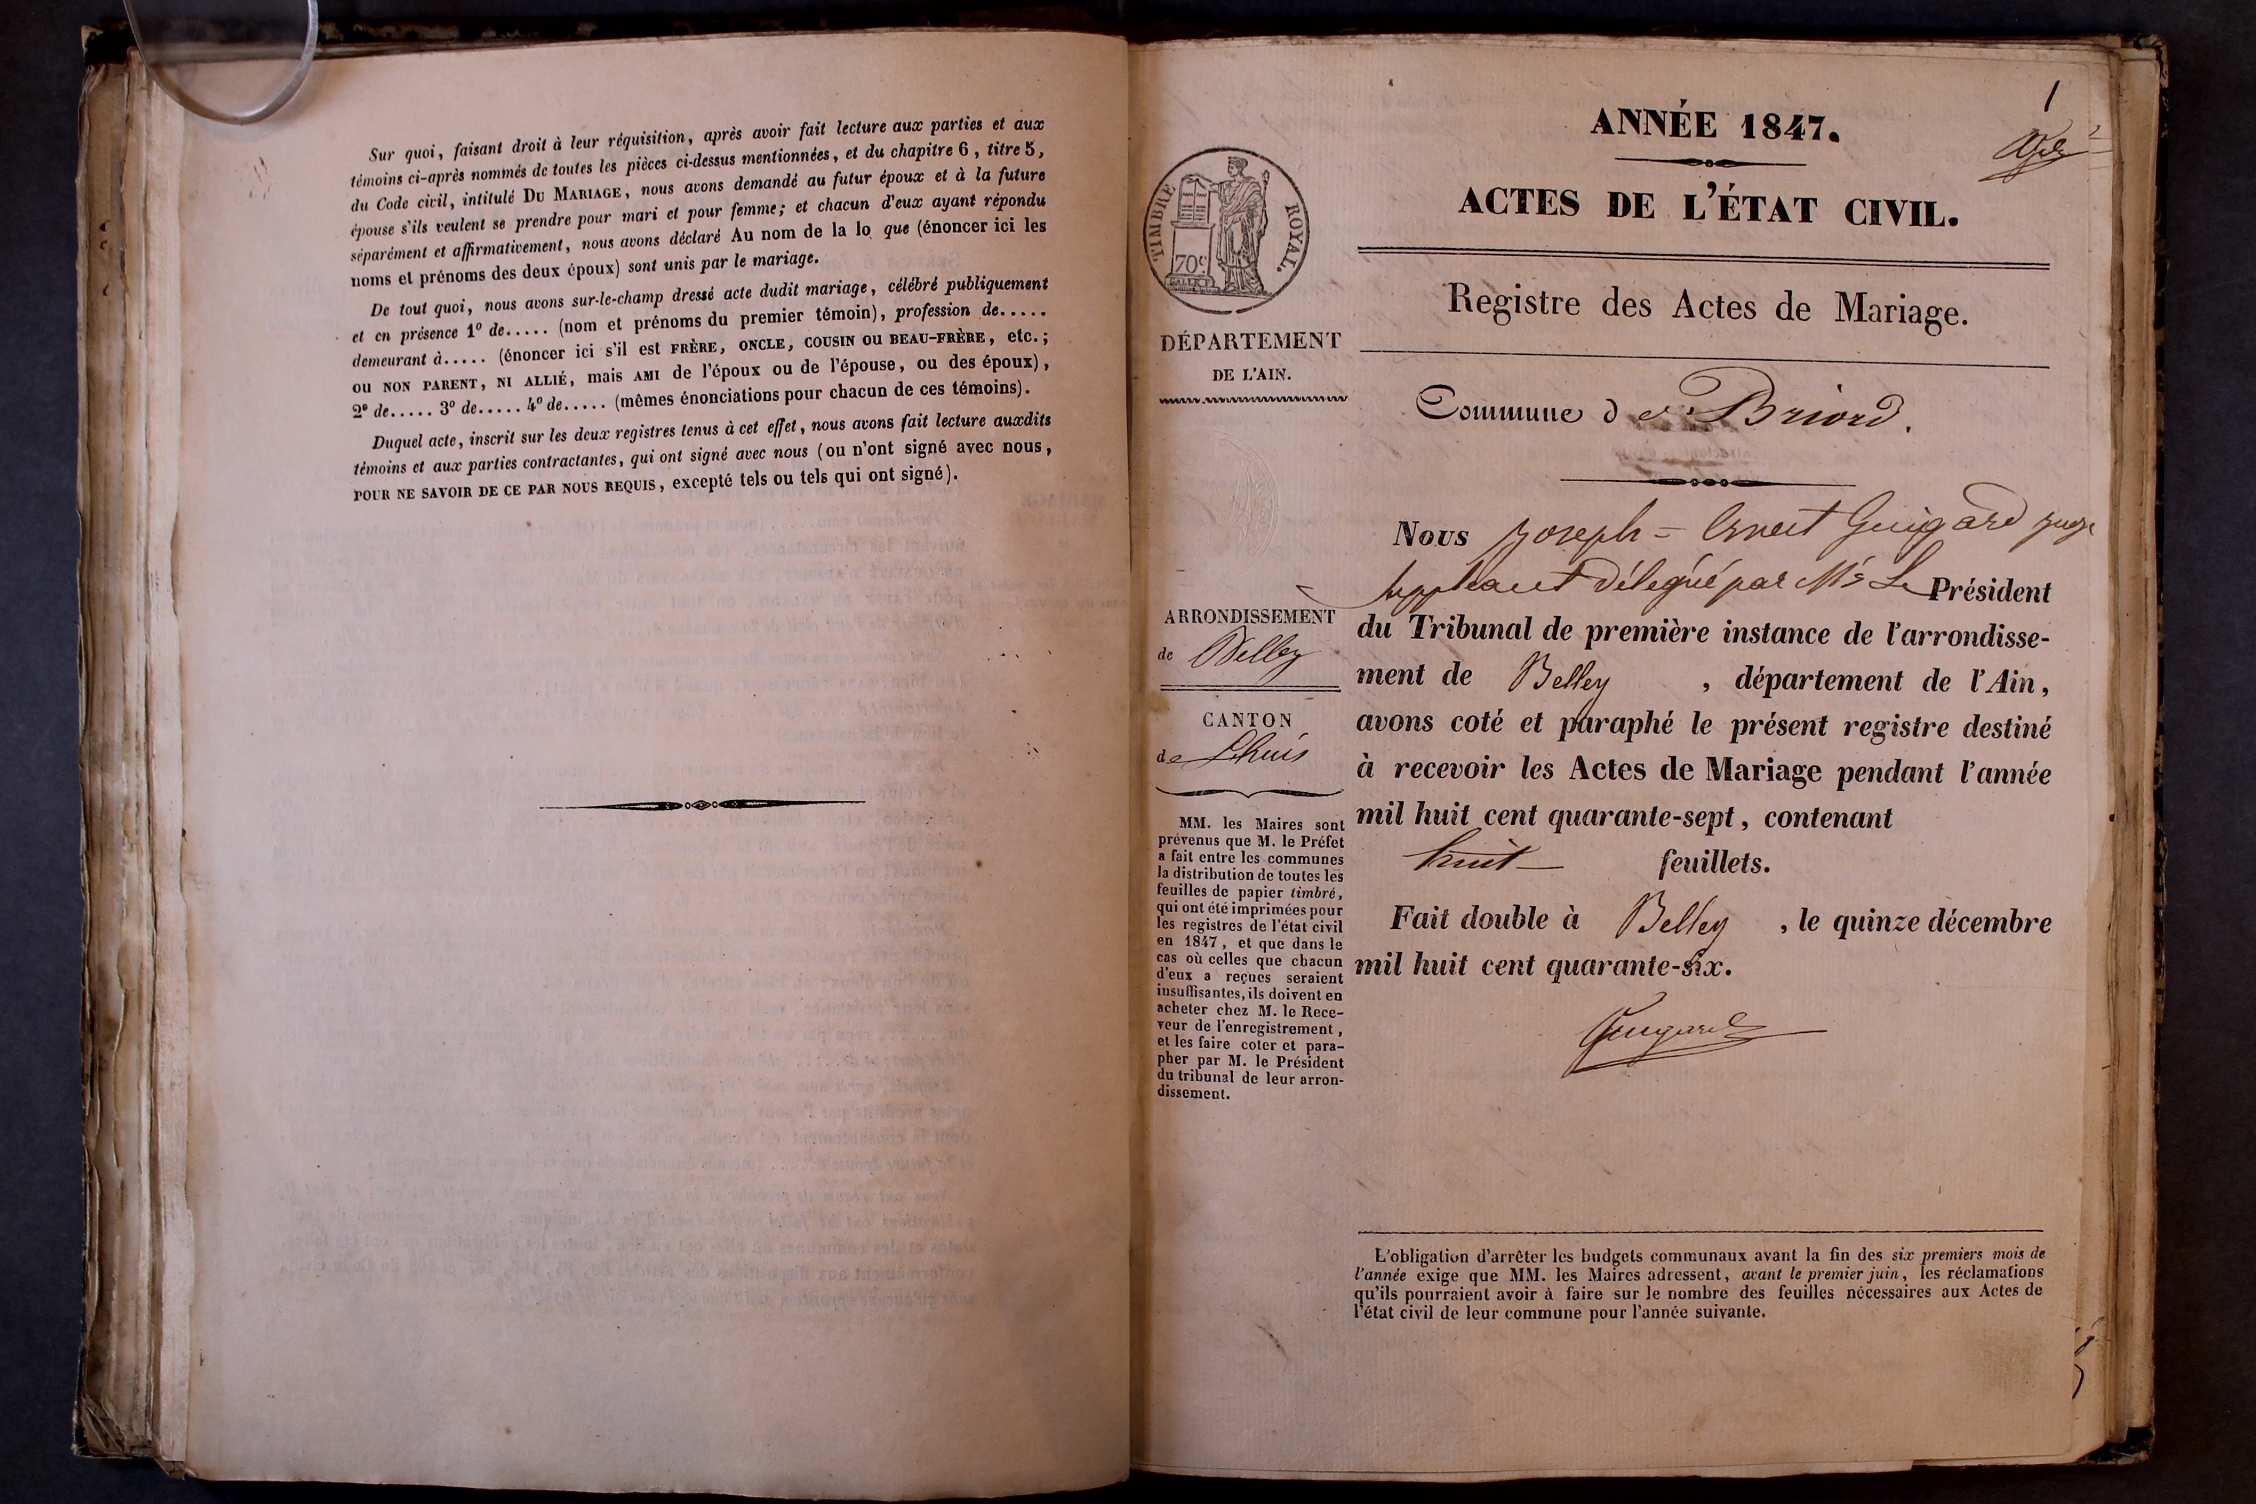 Sur quoi, faisant droit à leur réquisition, après avoir fait lecture aux parties et aux
témoins ci-après nommés de toutes les pièces ci-dessus mentionnées, et du chapitre 6, titre 5,
du Code civil, intitulé DU MARIAGE, nous avons demandé au futur époux et à la future
épouse s'ils veulent se prendre pour mari et pour femme; et chacun d'eux ayant répondu
séparément et affirmativement, nous avons déclaré Au nom de la lo que (énoncer ici les
noms et prénoms des deux époux) sont unis par le mariage.
De tout quoi, nous avons sur-le-champ dressé acte dudit mariage, célébré publiquement
et en présence 1º de..... (nom et prénoms du premier témoin), profession de.....
demeurant à..... (énoncer ici s'il est FRÈRE, ONCLE, COUSIN OU BEAU-FRÈRE, etc.;
OU NON PARENT, NI ALLIÉ, mais AMI de l'époux ou de l'épouse, ou des époux),
2º de..... 3º de..... 4º de..... (mêmes énonciations pour chacun de ces témoins).
Duquel acte, inscrit sur les deux registres tenus à cet effet, nous avons fait lecture auxdits
témoins et aux parties contractantes, qui ont signé avec nous (ou n'ont signé avec nous,
POUR NE SAVOIR DE CE PAR NOUS REQUIS, excepté tels ou tels qui ont signé).
1
ANNÉE 1847.
ACTES DE L'ÉTAT CIVIL.
Registre des Actes de Mariage.
TIMBRE ROYAL.
70 c
DÉPARTEMENT
DE L'AIN.
Commune de Briord.
Nous Joseph-Ernest Guigard juge
suppleant délégué par Mr Le Président
du Tribunal de première instance de l'arrondisse-
ment de Belley, département de l'Ain,
avons coté et paraphé le présent registre destiné
à recevoir les Actes de Mariage pendant l'année
mil huit cent quarante-sept, contenant
huit feuillets.
Fait double à Belley, le quinze décembre
mil huit cent quarante-six.
Guigard
ARRONDISSEMENT
de Belley
CANTON
de Lhuis
MM. les Maires sont
prévenus que M. le Préfet
a fait entre les communes
la distribution de toutes les
feuilles de papier timbré,
qui ont été imprimées pour
les registres de l'état civil
en 1847, et que dans le
cas où celles que chacun
d'eux a reçues seraient
insuffisantes, ils doivent en
acheter chez M. le Rece-
veur de l'enregistrement,
et les faire coter et para-
pher par M. le Président
du tribunal de leur arron-
dissement.
L'obligation d'arrêter les budgets communaux avant la fin des six premiers mois de
l'année exige que MM. les Maires adressent, avant le premier juin, les réclamations
qu'ils pourraient avoir à faire sur le nombre des feuilles nécessaires aux Actes de
l'état civil de leur commune pour l'année suivante.